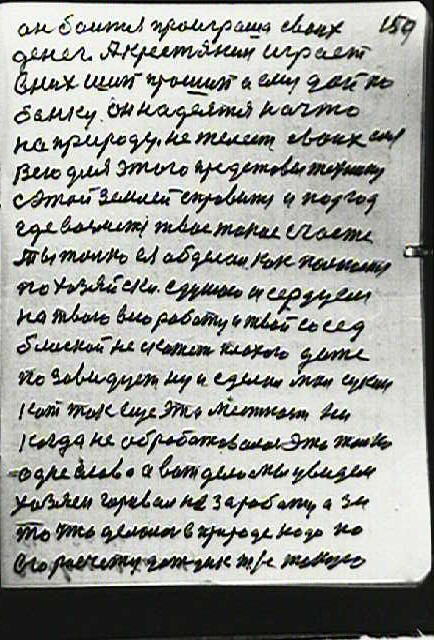 он боится проиграша своих 159
денег. А крестянин играет
в них шит прошит а ему дай по
банку. он надеятся на что
на природу. не жалеет своих сил
Всю для этого предстовы технику
с этой землей справитц и подгод
где возметц твое такое счасте
Ты толко ея обделай как
по хозяйски. с душою и сердцем
на твою вию работу и твой сосед
блиской не скажет плохого даже
позавидует ну и сделал
кот так еще эта местност ни
когда не обработовалас это толко
одне слова а вот дело мы увидем
хозяен горевал не за работу а за
то что делалос в природе надо по
его расчету дождик